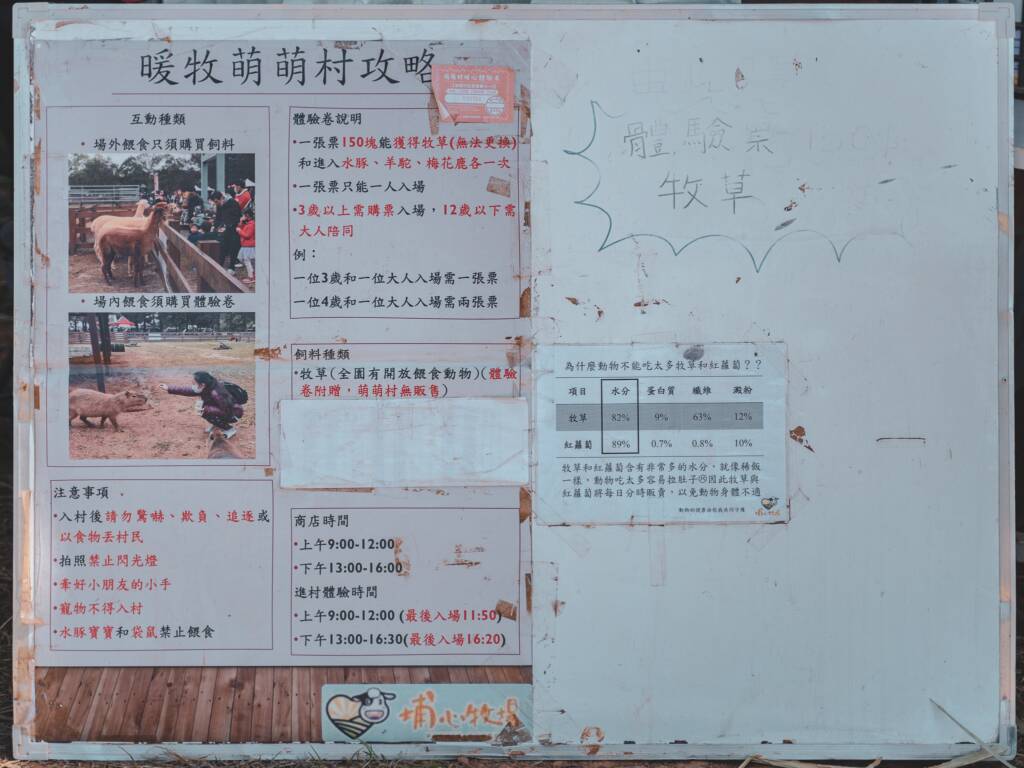 暖牧萌萌村攻略
互動種類
• 場外餵食只須購買飼料
• 場內餵食須購買體驗卷
注意事項
•入村後請勿驚嚇、欺負、追逐或
以食物丟村民
•拍照禁止閃光燈
•牽好小朋友的小手
•寵物不得入村
•水豚寶寶和袋鼠禁止餵食
體驗卷說明
•一張票150塊能獲得牧草(無法更換)
和進入水豚、羊駝、梅花鹿各一次
•一張票只能一人入場
•3歲以上需購票入場，12歲以下需
大人陪同
例：
一位3歲和一位大人入場需一張票
一位4歲和一位大人入場需兩張票
飼料種類
•牧草(全園有開放餵食動物)(體驗
卷附贈，萌萌村無販售)
商店時間
•上午9:00-12:00
•下午13:00-16:00
進村體驗時間
•上午9:00-12:00 (最後入場11:50)
•下午13:00-16:30(最後入場16:20)
埔心牧場
體驗票
牧草
為什麼動物不能吃太多牧草和紅蘿蔔？？
項目 水分 蛋白質 纖維 澱粉
牧草 82% 9% 63% 12%
紅蘿蔔 89% 0.7% 0.8% 10%
牧草和紅蘿蔔含有非常多的水分，就像稀飯
一樣，動物吃太多容易拉肚子因此牧草與
紅蘿蔔將每日分時販賣，以免動物身體不適
動物的健康由你我共同守護
埔心牧場